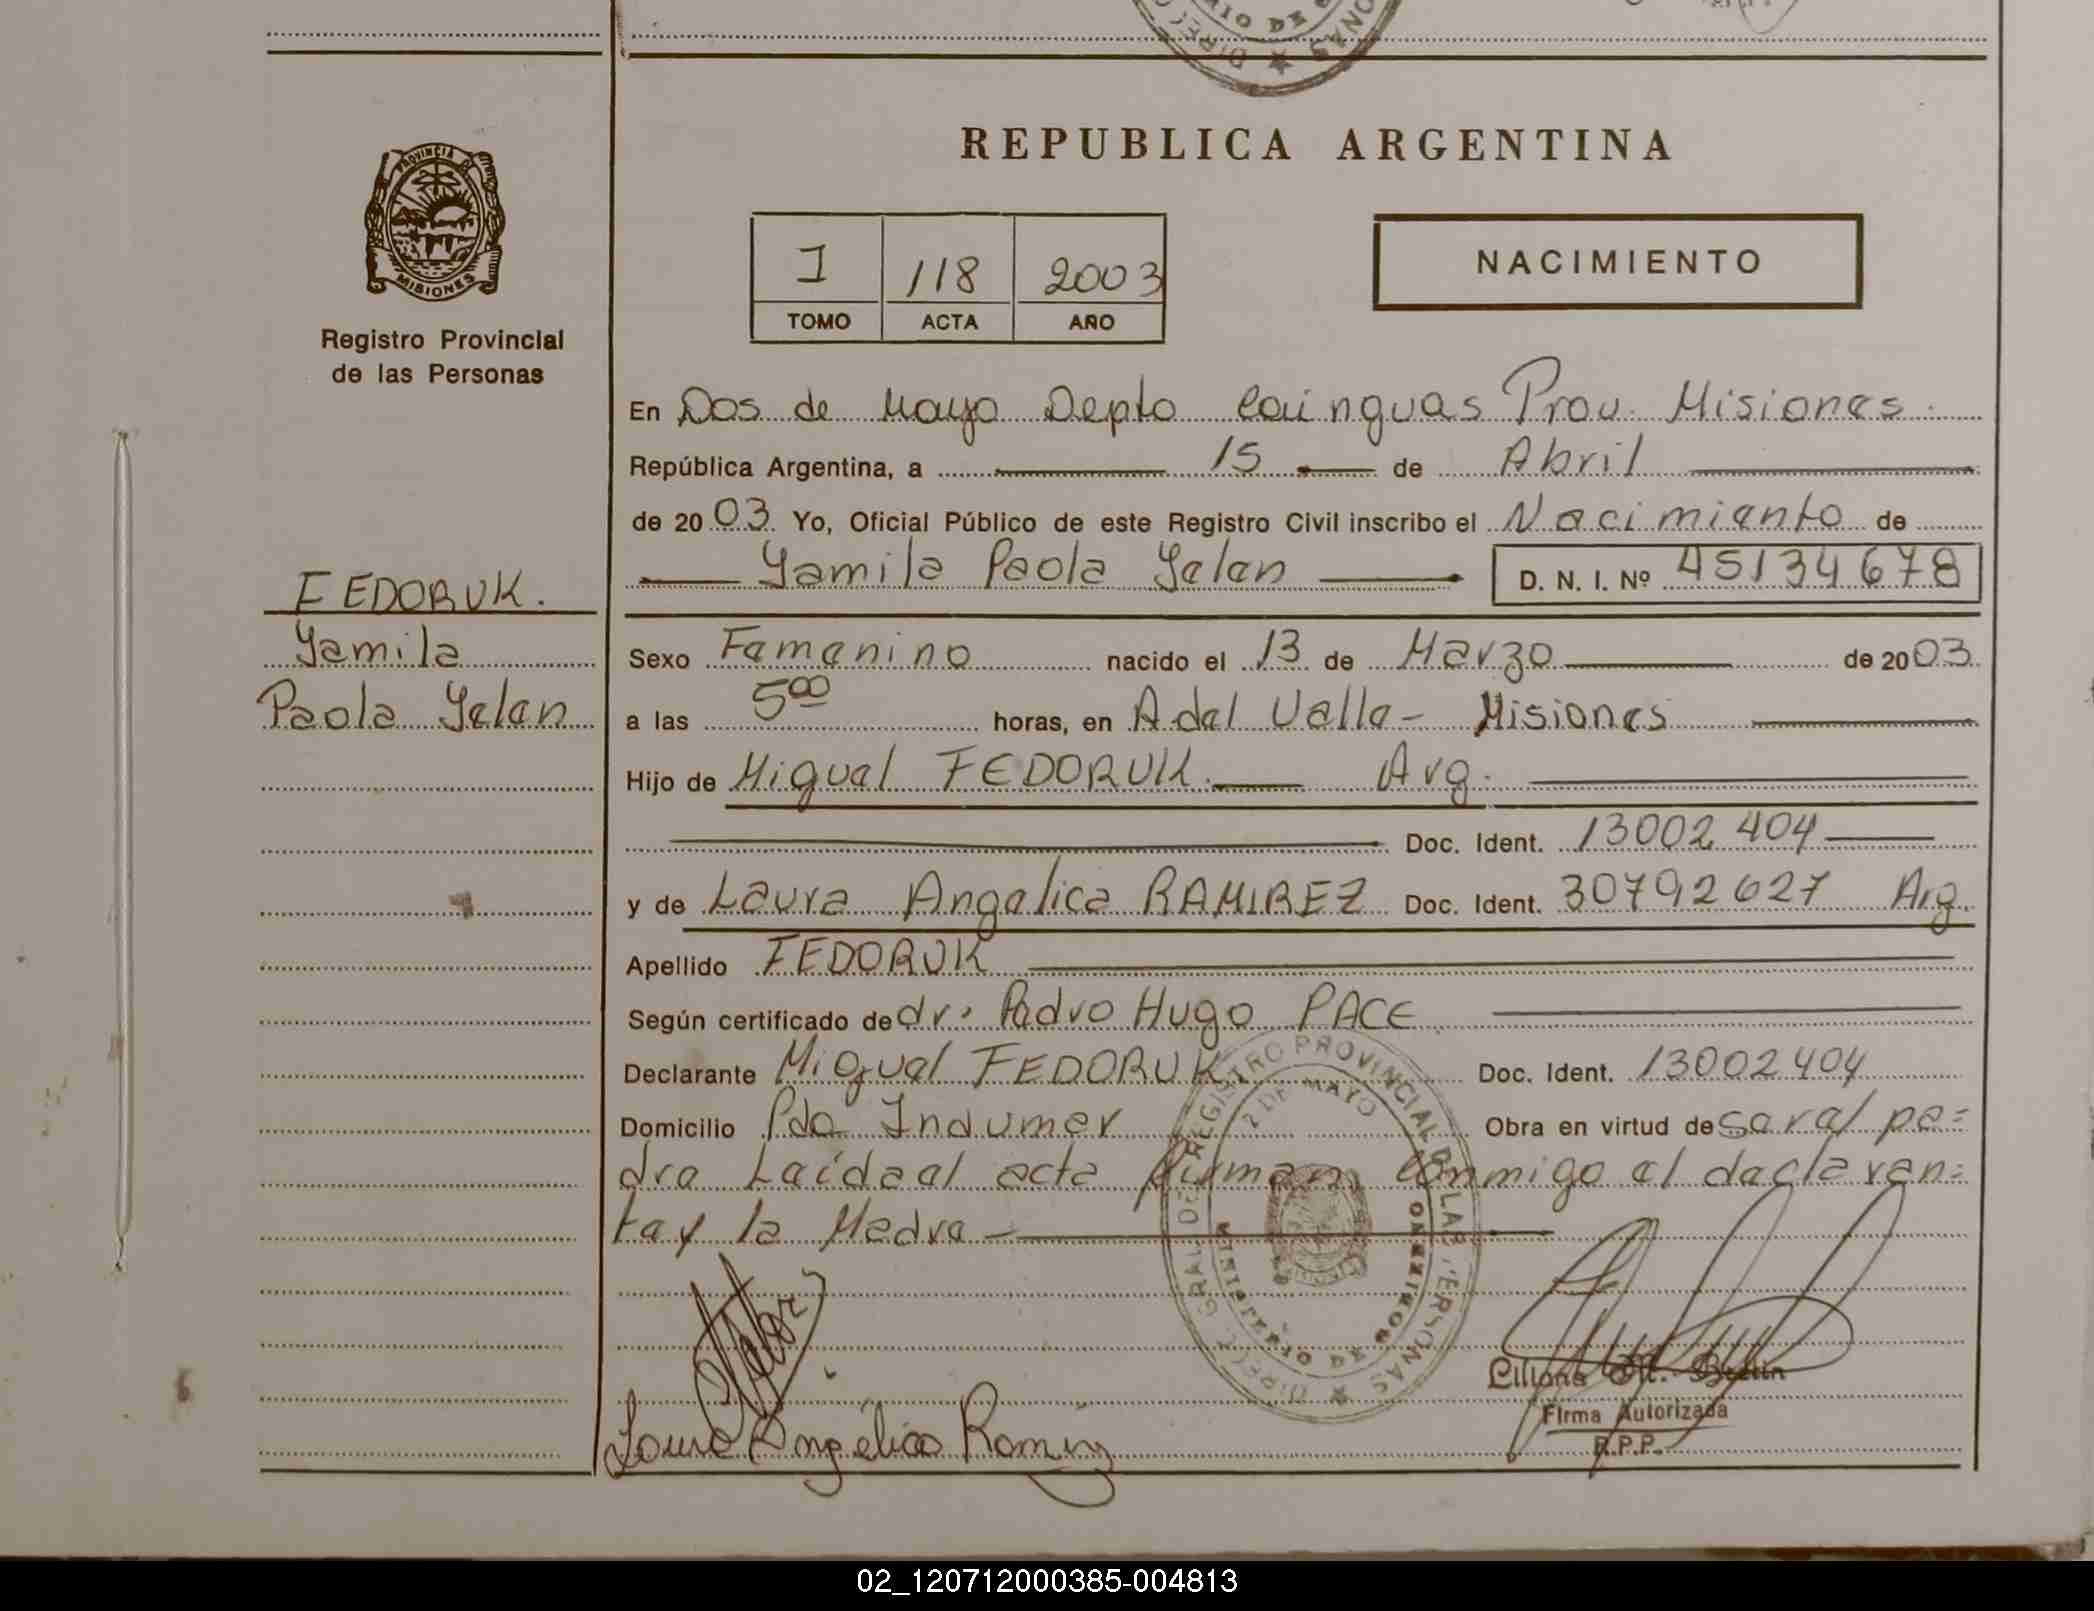 REPUBLICA ARGENTINA
PROVINCIA DE
MISIONES
Registro Provincial
de las Personas
I 118 2003
TOMO ACTA AÑO
NACIMIENTO
En Dos de Mayo Depto Cainguas Prov. Misiones.
República Argentina, a 15 de Abril
de 20 03 Yo, Oficial Público de este Registro Civil inscribo el Nacimiento de
Yamila Paola Yelen D. N. I. Nº 45134678
FEDORUK.
Yamila
Paola Yelen
Sexo Femenino nacido el 13 de Marzo de 20 03
a las 5⁰⁰ horas, en A. del Valle - Misiones
Hijo de Miguel FEDORUK. Arg.
Doc. Ident. 13002404
y de Laura Angelica RAMIREZ Doc. Ident. 30792627 Arg.
Apellido FEDORUK
Según certificado de dr. Pedro Hugo PACE
Declarante Miguel FEDORUK Doc. Ident. 13002404
Domicilio Pdo Indumar Obra en virtud de ser el pa=
dre Leída el acta firman conmigo el declaran=
te y la Madre
REGISTRO PROVINCIAL DE LAS PERSONAS
DIREC. GRAL. DE
2 DE MAYO
MINISTERIO DE GOBIERNO
Laura Angélica Ramirez
Firma Autorizada
R.P.P.
02_120712000385-004813